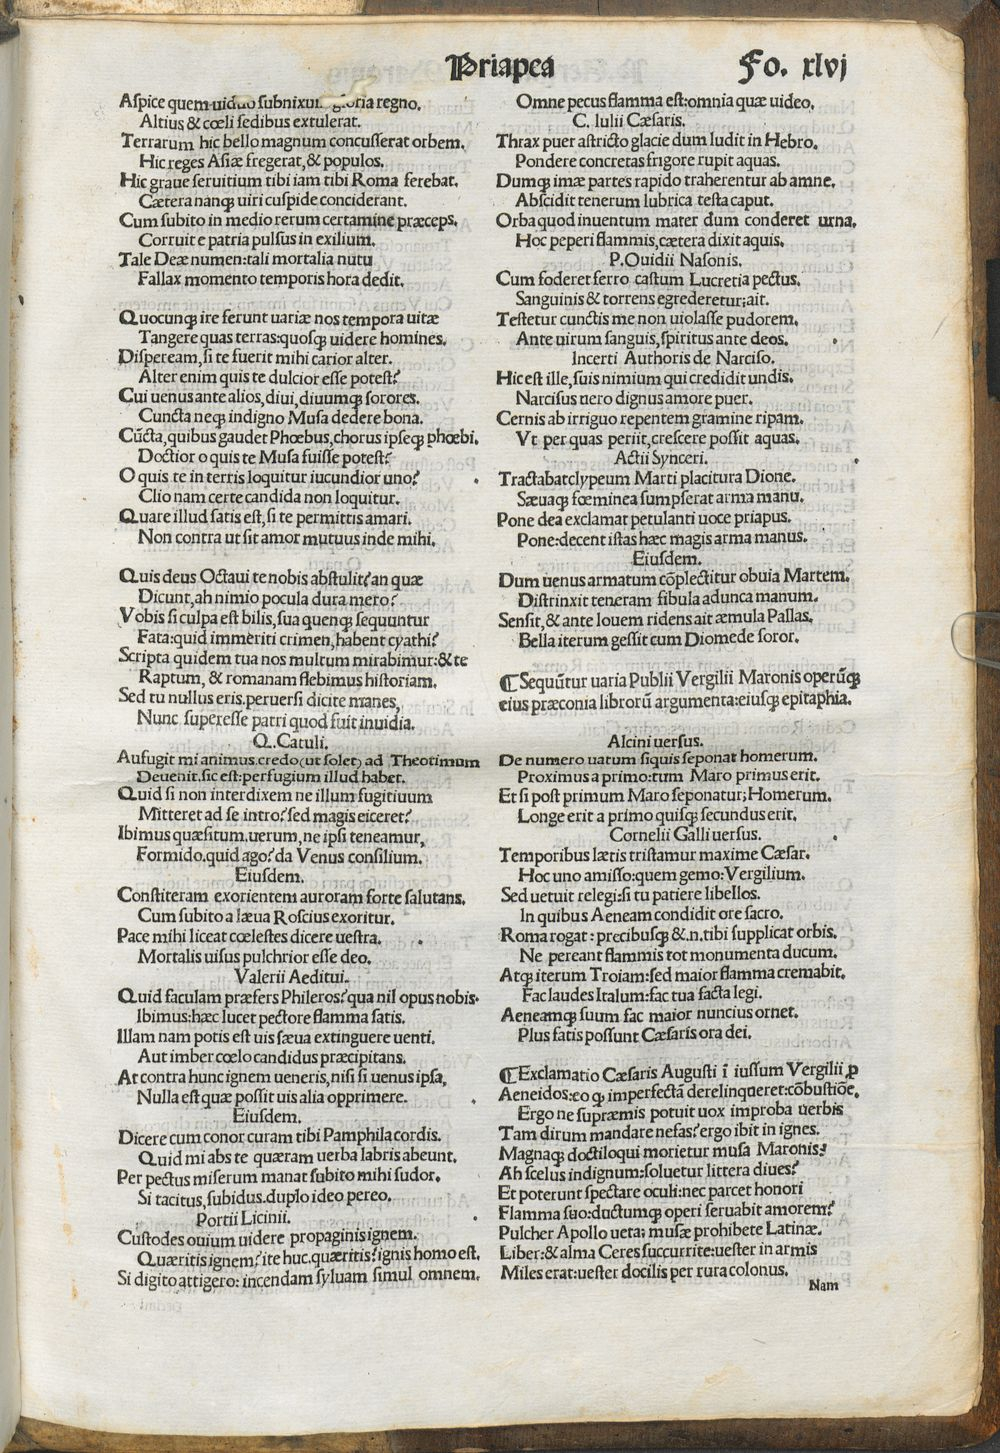 Priapea
Fo. xlvj
Aspice quem uiduo subnixum gloria regno.
Altius & cœli sedibus extulerat.
Terrarum hic bello magnum concusserat orbem.
Hic reges Asiæ fregerat,& populos.
Hic graue seruitium tibi iam tibi Roma ferebat.
Cætera nanqꝫ uiri cuspide conciderant.
Cum subito in medio rerum certamine præceps.
Corruit e patria pulsus in exilium.
Tale Deæ numen:tali mortalia nutu
Fallax momento temporis hora dedit.
Quocunqꝫ ire ferunt uariæ nos tempora uitæ
Tangere quas terras:quosqꝫ uidere homines.
Dispeream,si te fuerit mihi carior alter.
Alter enim quis te dulcior esse potest?
Cui uenus ante alios,diui,diuumqꝫ sorores.
Cuncta neqꝫ indigno Musa dedere bona.
Cūcta,quibus gaudet Phœbus,chorus ipseqꝫ phœbi.
Doctior o quis te Musa fuisse potest?
O quis te in terris loquitur iucundior uno?
Clio nam certe candida non loquitur.
Quare illud satis est,si te permittis amari.
Non contra ut sit amor mutuus inde mihi.
Quis deus Octaui te nobis abstulit?an quæ
Dicunt,ah nimio pocula dura mero?
Vobis si culpa est bilis,sua quenqꝫ sequuntur
Fata:quid immeriti crimen,habent cyathi?
Scripta quidem tua nos multum mirabimur:& te
Raptum, & romanam flebimus historiam.
Sed tu nullus eris.peruersi dicite manes,
Nunc superesse patri quod fuit inuidia.
Q.Catuli.
Aufugit mi animus.credo(ut solet) ad Theotimum
Deuenit.sic est:perfugium illud habet.
Quid si non interdixem ne illum fugitiuum
Mitteret ad se intro?sed magis eiceret?
Ibimus quæsitum.uerum,ne ipsi teneamur,
Formido.quid ago?da Venus consilium.
Eiusdem.
Constiteram exorientem auroram forte salutans.
Cum subito a læua Roscius exoritur.
Pace mihi liceat cœlestes dicere uestra.
Mortalis uisus pulchrior esse deo.
Valerii Aeditui.
Quid faculam præfers Phileros?qua nil opus nobis.
Ibimus:hæc lucet pectore flamma satis.
Illam nam potis est uis sæua extinguere uenti.
Aut imber cœlo candidus præcipitans.
At contra hunc ignem ueneris,nisi si uenus ipsa,
Nulla est quæ possit uis alia opprimere.
Eiusdem.
Dicere cum conor curam tibi Pamphila cordis.
Quid mi abs te quæram uerba labris abeunt.
Per pectus miserum manat subito mihi sudor.
Si tacitus,subidus.duplo ideo pereo.
Portii Licinii.
Custodes ouium uidere propaginis ignem.
Quæritis ignem?ite huc.quæritis?ignis homo est.
Si digito attigero:incendam syluam simul omnem.
Omne pecus flamma est:omnia quæ uideo.
C. Iulii Cæsaris.
Thrax puer astricto glacie dum ludit in Hebro.
Pondere concretas frigore rupit aquas.
Dumqꝫ imæ partes rapido traherentur ab amne.
Abscidit tenerum lubrica testa caput.
Orba quod inuentum mater dum conderet urna.
Hoc peperi flammis,cætera dixit aquis.
P.Ouidii Nasonis.
Cum foderet ferro castum Lucretia pectus.
Sanguinis & torrens egrederetur;ait.
Testetur cunctis me non uiolasse pudorem.
Ante uirum sanguis,spiritus ante deos.
Incerti Authoris de Narciso.
Hic est ille,suis nimium qui credidit undis.
Narcisus uero dignus amore puer.
Cernis ab irriguo repentem gramine ripam.
Vt per quas periit,crescere possit aquas.
Actii Synceri.
Tractabat clypeum Marti placitura Dione.
Sæuaqꝫ fœminea sumpserat arma manu.
Pone dea exclamat petulanti uoce priapus.
Pone:decent istas hæc magis arma manus.
Eiusdem.
Dum uenus armatum cōplectitur obuia Martem.
Distrinxit teneram fibula adunca manum.
Sensit,& ante Iouem ridens ait æmula Pallas.
Bella iterum gessit cum Diomede soror.
¶ Sequūtur uaria Publii Vergilii Maronis operūqꝫ
eius præconia librorū argumenta:eiusqꝫ epitaphia.
Alcini uersus.
De numero uatum siquis seponat homerum.
Proximus a primo:tum Maro primus erit.
Et si post primum Maro seponatur;Homerum.
Longe erit a primo quisqꝫ secundus erit.
Cornelii Galli uersus.
Temporibus lætis tristamur maxime Cæsar.
Hoc uno amisso:quem gemo:Vergilium.
Sed uetuit relegi:si tu patiere libellos.
In quibus Aeneam condidit ore sacro.
Roma rogat:precibusqꝫ &.n.tibi supplicat orbis.
Ne pereant flammis tot monumenta ducum.
Atqꝫ iterum Troiam:sed maior flamma cremabit.
Fac laudes Italum:fac tua facta legi.
Aeneamqꝫ suum fac maior nuncius ornet.
Plus fatis possunt Cæsaris ora dei.
¶ Exclamatio Cæsaris Augusti ī iussum Vergilii ꝓ
Aeneidos:eo qꝫ imperfectā derelinqueret:cōbustiōe.
Ergo ne supræmis potuit uox improba uerbis
Tam dirum mandare nefas?ergo ibit in ignes.
Magnaqꝫ doctiloqui morietur musa Maronis?
Ah scelus indignum:soluetur littera diues?
Et poterunt spectare oculi:nec parcet honori
Flamma suo:ductumqꝫ operi seruabit amorem?
Pulcher Apollo ueta:musæ prohibete Latinæ.
Liber:& alma Ceres succurrite:uester in armis
Miles erat:uester docilis per rura colonus.
Nam